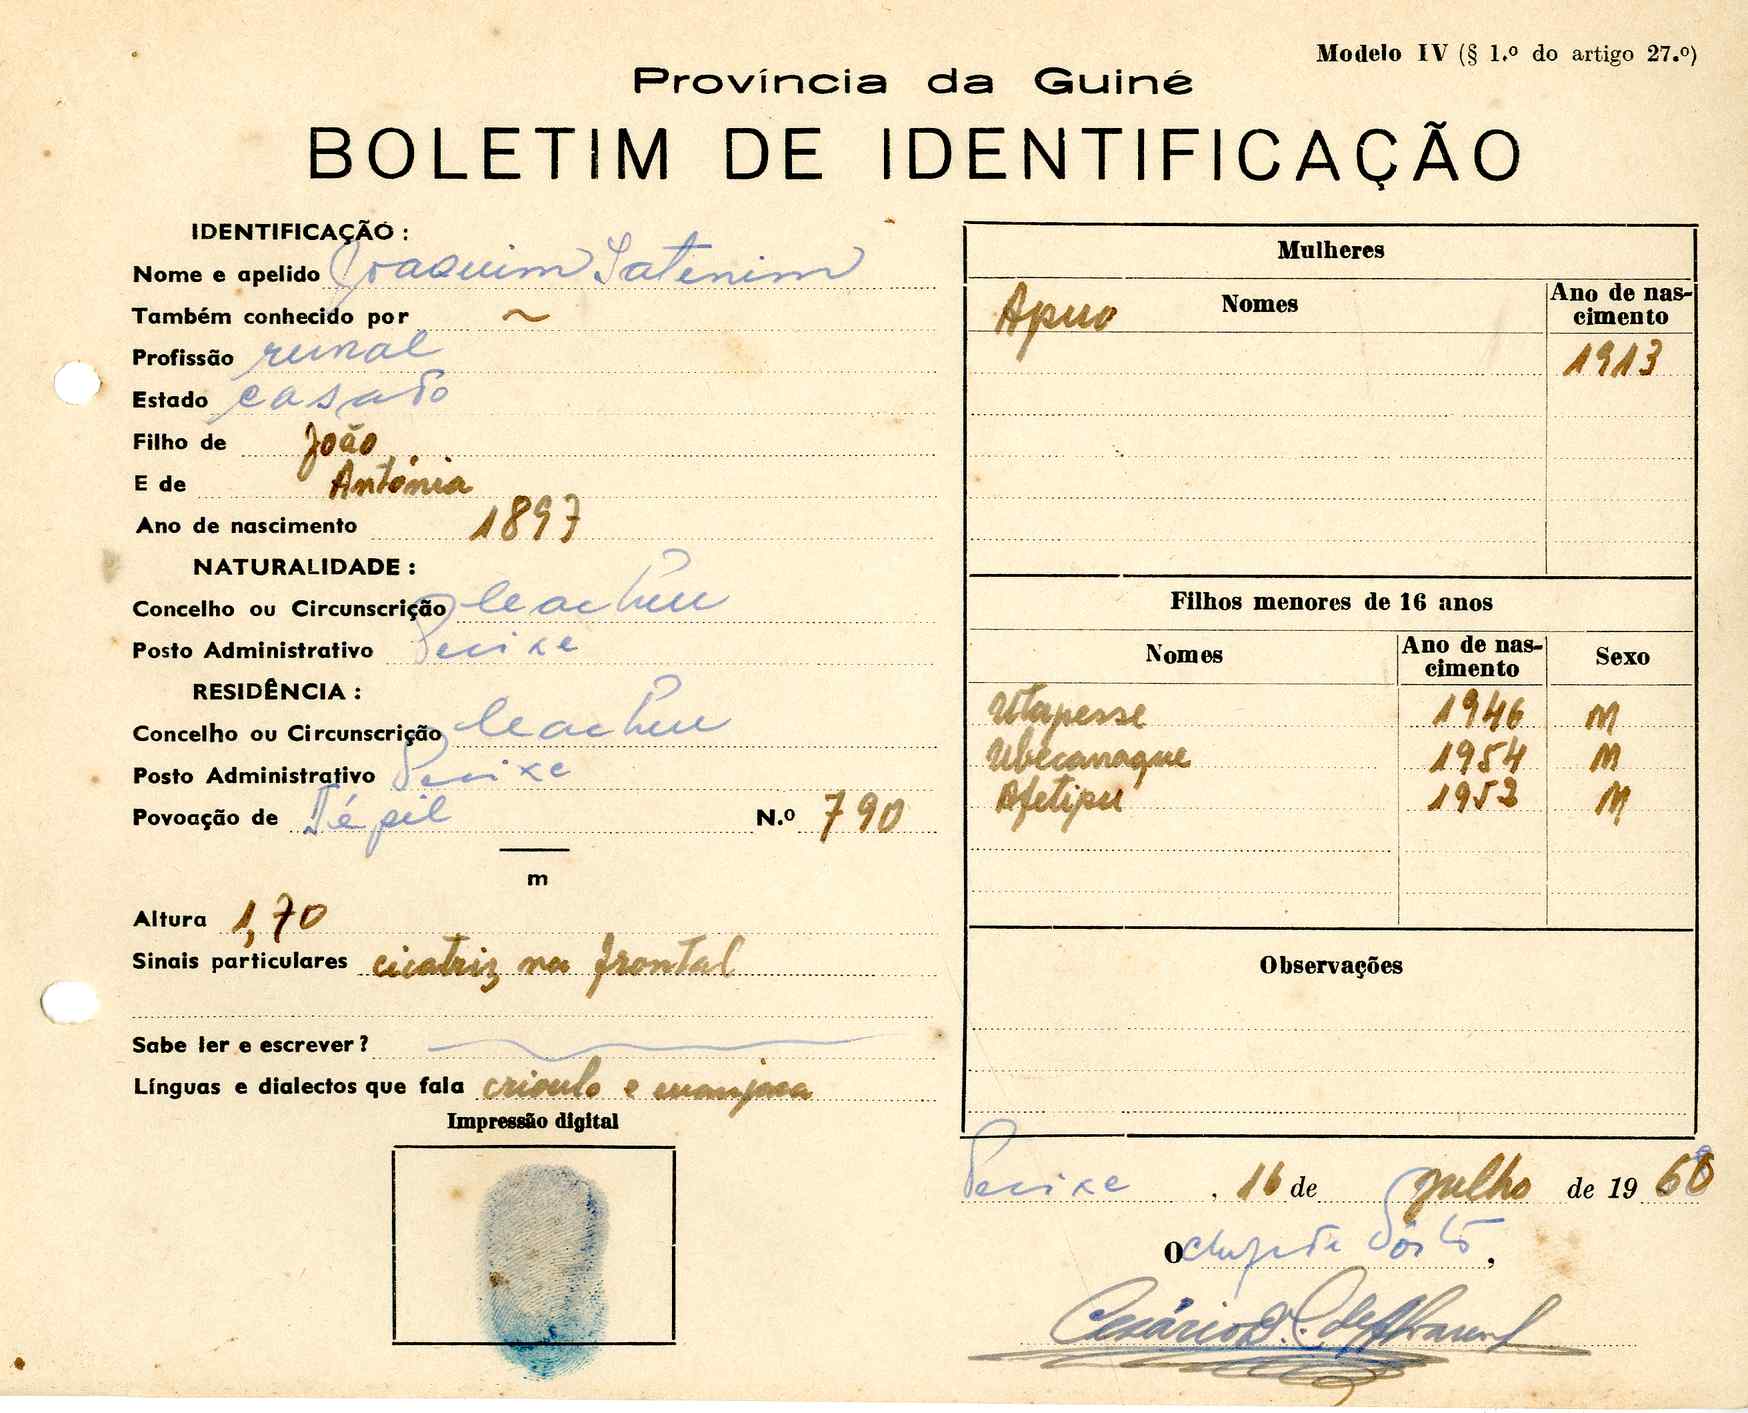 Modelo IV (§ 1.º do artigo 27.º)
Província da Guiné
BOLETIM DE IDENTIFICAÇÃO
IDENTIFICAÇÃO :
Nome e apelido Joaquim Satenim
Também conhecido por ~
Profissão rural
Estado casado
Filho de João
E de Antónia
Ano de nascimento 1897
NATURALIDADE :
Concelho ou Circunscrição Cacheu
Posto Administrativo Pecixe
RESIDÊNCIA :
Concelho ou Circunscrição Cacheu
Posto Administrativo Pecixe
Povoação de Tépil N.º 790
m
Altura 1,70
Sinais particulares cicatriz na frontal
Sabe ler e escrever?
Línguas e dialectos que fala crioulo e manjaca
Impressão digital
Mulheres
Nomes Ano de nas-
cimento
Apuo
1913
Filhos menores de 16 anos
Nomes Ano de nas- Sexo
cimento
Utapesse 1946 M
Ubecanaque 1954 M
Afetipu 1952 M
Observações
Pecixe, 16 de Julho de 1960
O chefe de Posto,
Cesário